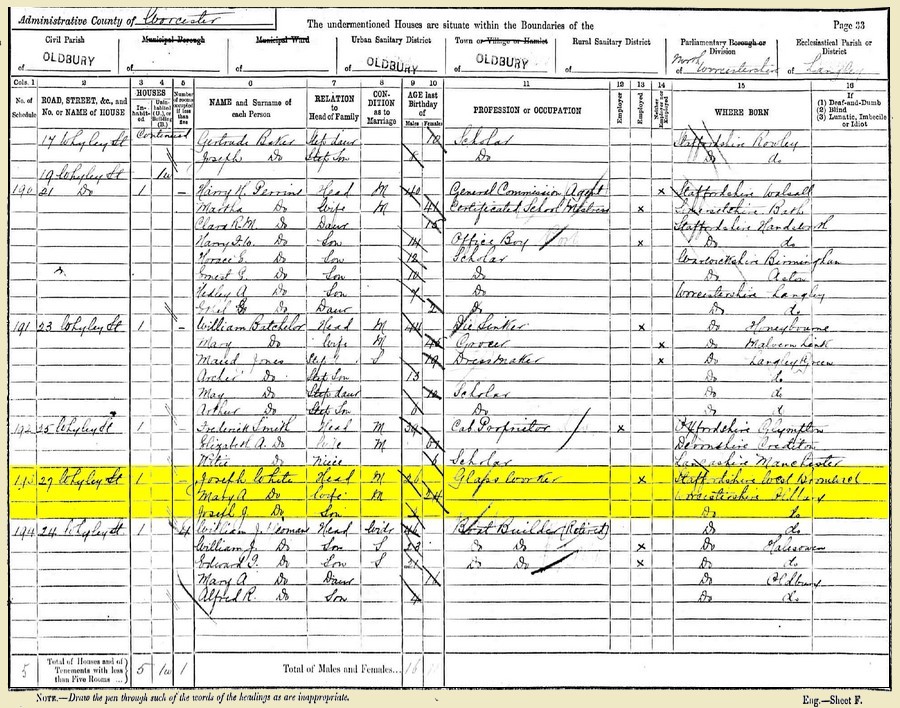 Administrative County of Worcester
The undermentioned Houses are situate within the Boundaries of the
Page 33
Civil Parish of OLDBURY
Municipal Borough of
Municipal Ward of
Urban Sanitary District of OLDBURY
Town or Village or Hamlet of OLDBURY
Rural Sanitary District of
Parliamentary Borough or Division of North Worcestershire
Ecclesiastical Parish or District of Langley
Cols. 1 2 3 4 5 6 7 8 9 10 11 12 13 14 15 16
No. of Schedule ROAD, STREET, &c., and No. or NAME of HOUSE HOUSES Inhabited Uninhabited (U.), or Building (B.) Number of rooms occupied if less than five NAME and Surname of each Person RELATION to Head of Family CONDITION as to Marriage AGE last Birthday of Males Females PROFESSION or OCCUPATION Employer Employed Neither Employer nor Employed WHERE BORN (1) Deaf-and-Dumb (2) Blind (3) Lunatic, Imbecile or Idiot
17 Whyley St Continued Gertrude Baker Step daur Scholar Staffordshire Rowley
Joseph Do Step Son 8 Do Do do
19 Whyley St
190 21 Do 1 Harry H. Perrins Head M 40 General Commission Agent x Staffordshire Walsall
Martha Do Wife M 41 Certificated School Mistress x Somersetshire Bath
Clara R. M. Do Daur 15 Staffordshire Handsworth
Harry Do Son 14 Office Boy x Do do
Horace E. Do Son 12 Scholar Warwickshire Birmingham
Ernest G. Do Son 10 Do Do Aston
Hedley A. Do Son Do Worcestershire Langley
Do Daur 2 Do do
191 23 Whyley St 1 William Batchelor Head M 44 Die Sinker x Do Honeybourne
Mary Do Wife M Grocer x Do Malvern Link
Maud Jones S 19 Dressmaker x Do Langley Green
Archie Do Step Son 13 Do do
May Do Step daur 12 Scholar Do do
Arthur Do Step Son Do Do
192 25 Whyley St 1 Frederick Smith Head M Cab Proprietor x Plympton
Elizabeth A. Do Wife M Devonshire Crediton
Do Niece Scholar Lancashire Manchester
193 27 Whyley St 1 Joseph White Head M 26 Glass Worker x Staffordshire West Bromwich
Mary A Do Wife M 24 Worcestershire
Joseph J. Do Son Do do
194 24 Whyley St 1 4 William J. Head Widr 46 Boat Builder (Retired) Do do
William J. Do Son S 23 Do Do x Do Halesowen
Edward Do Son S 21 Do Do x Do do
Mary A Do Daur Do Oldbury
Alfred R. Do Son 4 Do do
5 Total of Houses and of Tenements with less than Five Rooms ... 5 1 Total of Males and Females... 16
NOTE.—Draw the pen through such of the words of the headings as are inappropriate.
Eng.—Sheet F.